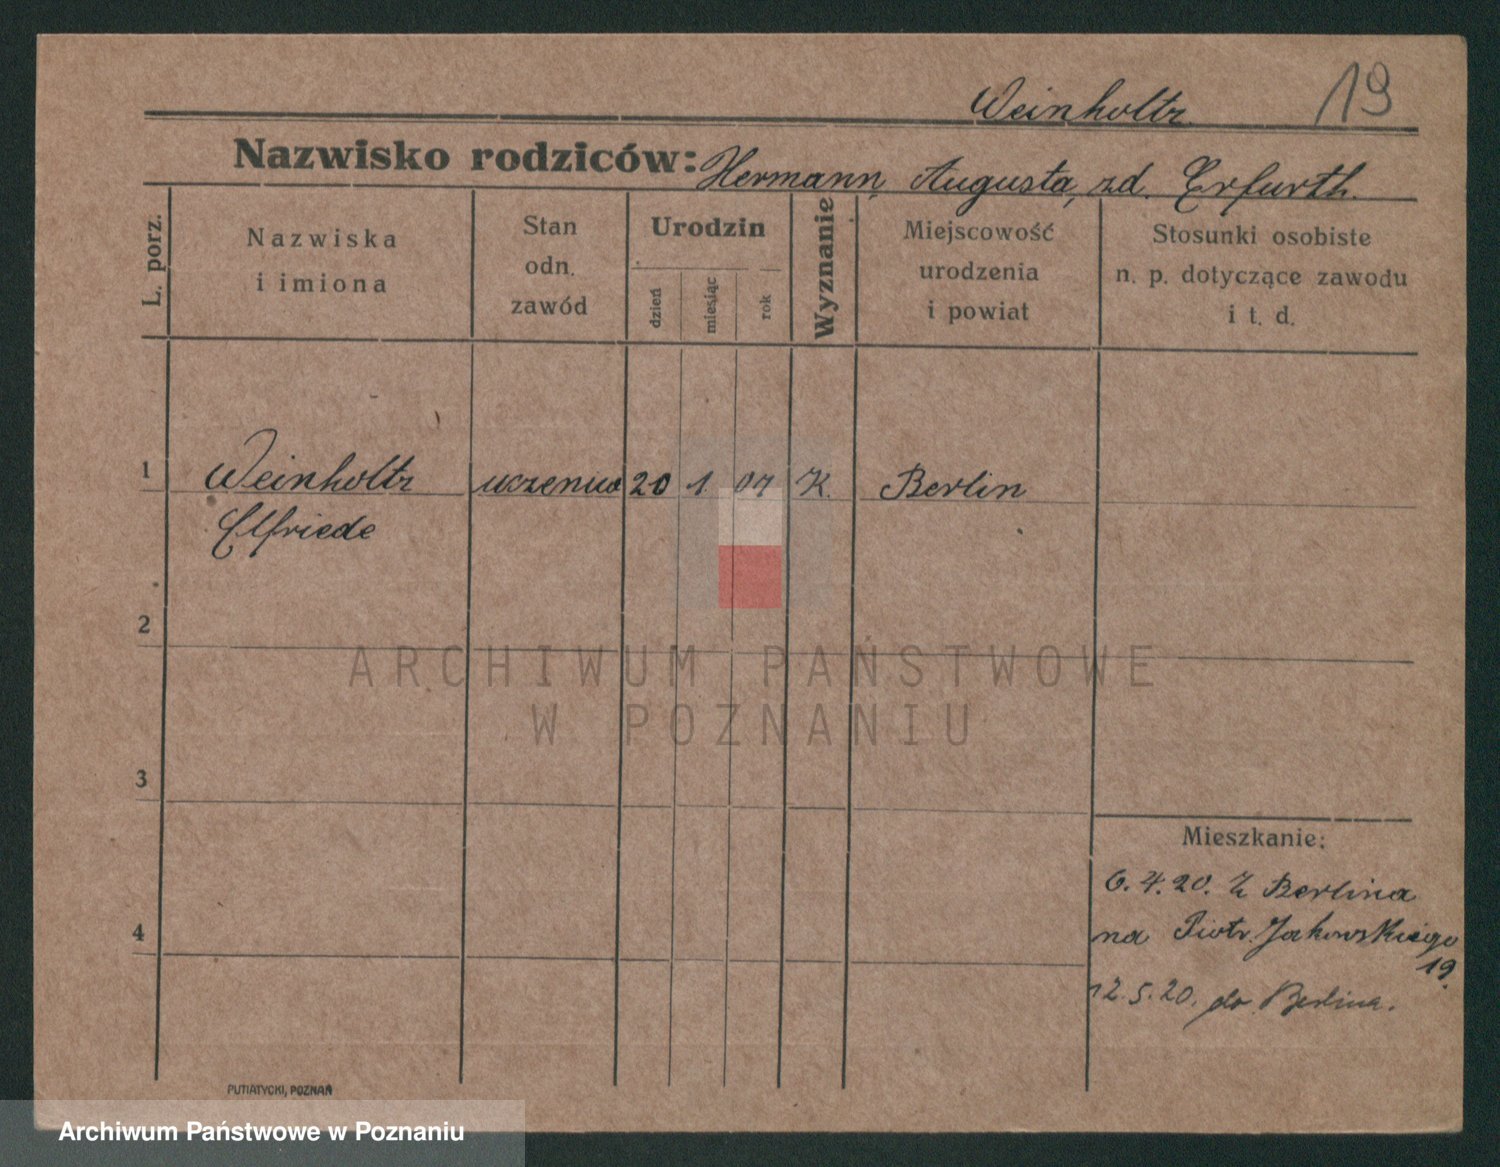 Weinholtz 19
Nazwisko rodziców: Hermann, Augusta, zd. Erfurth.
L. porz.
Nazwiska
i imiona
Stan
odn.
zawód
Urodzin
dzień
miesiąc
rok
Wyznanie
Miejscowość
urodzenia
i powiat
Stosunki osobiste
n. p. dotyczące zawodu
i t. d.
1 Weinholtz uczenica 20 1 07 K. Berlin
Elfriede
2
ARCHIWUM PAŃSTWOWE
W POZNANIU
3
Mieszkanie:
6.4.20. Z Berlina
4
na Piotr. Jackowskiego
19.
12.5.20. do Berlina.
PUTIATYCKI, POZNAŃ
Archiwum Państwowe w Poznaniu